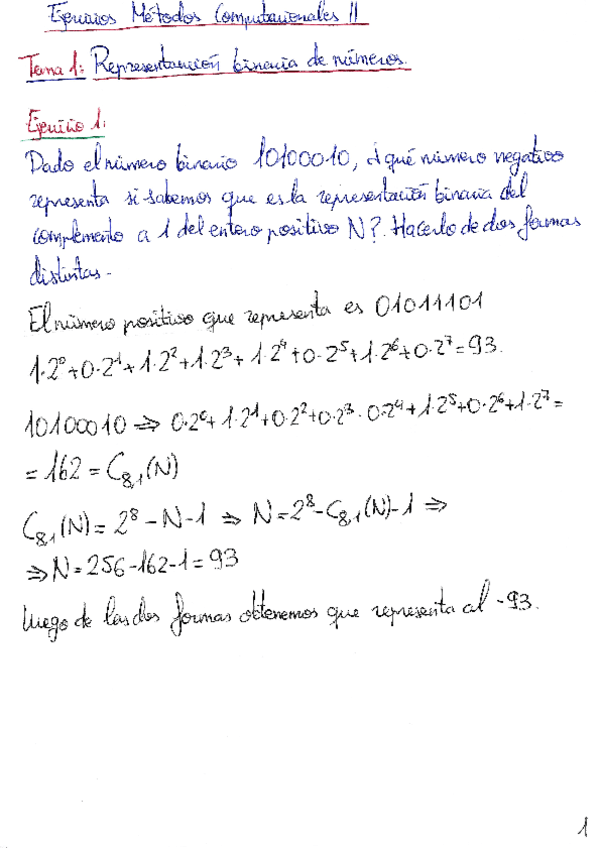 Ejercicios Métodos Computacionales II
Tema 1: Representación binaria de números.
Ejercicio 1:
Dado el número binario 10100010, ¿a qué número negativo
representa si sabemos que es la representación binaria del
complemento a 1 del entero positivo N?. Hacerlo de dos formas
distintas.
El número positivo que representa es 01011101
1·2⁰+0·2¹+1·2²+1·2³+1·2⁴+0·2⁵+1·2⁶+0·2⁷=93.
10100010 ⇒ 0·2⁰+1·2¹+0·2²+0·2³·0·2⁴+1·2⁵+0·2⁶+1·2⁷=
= 162 = C₈,₁(N)
C₈,₁(N) = 2⁸-N-1 ⇒ N=2⁸-C₈,₁(N)-1 ⇒
⇒ N=256-162-1=93
Luego de las dos formas obtenemos que representa al -93.
1